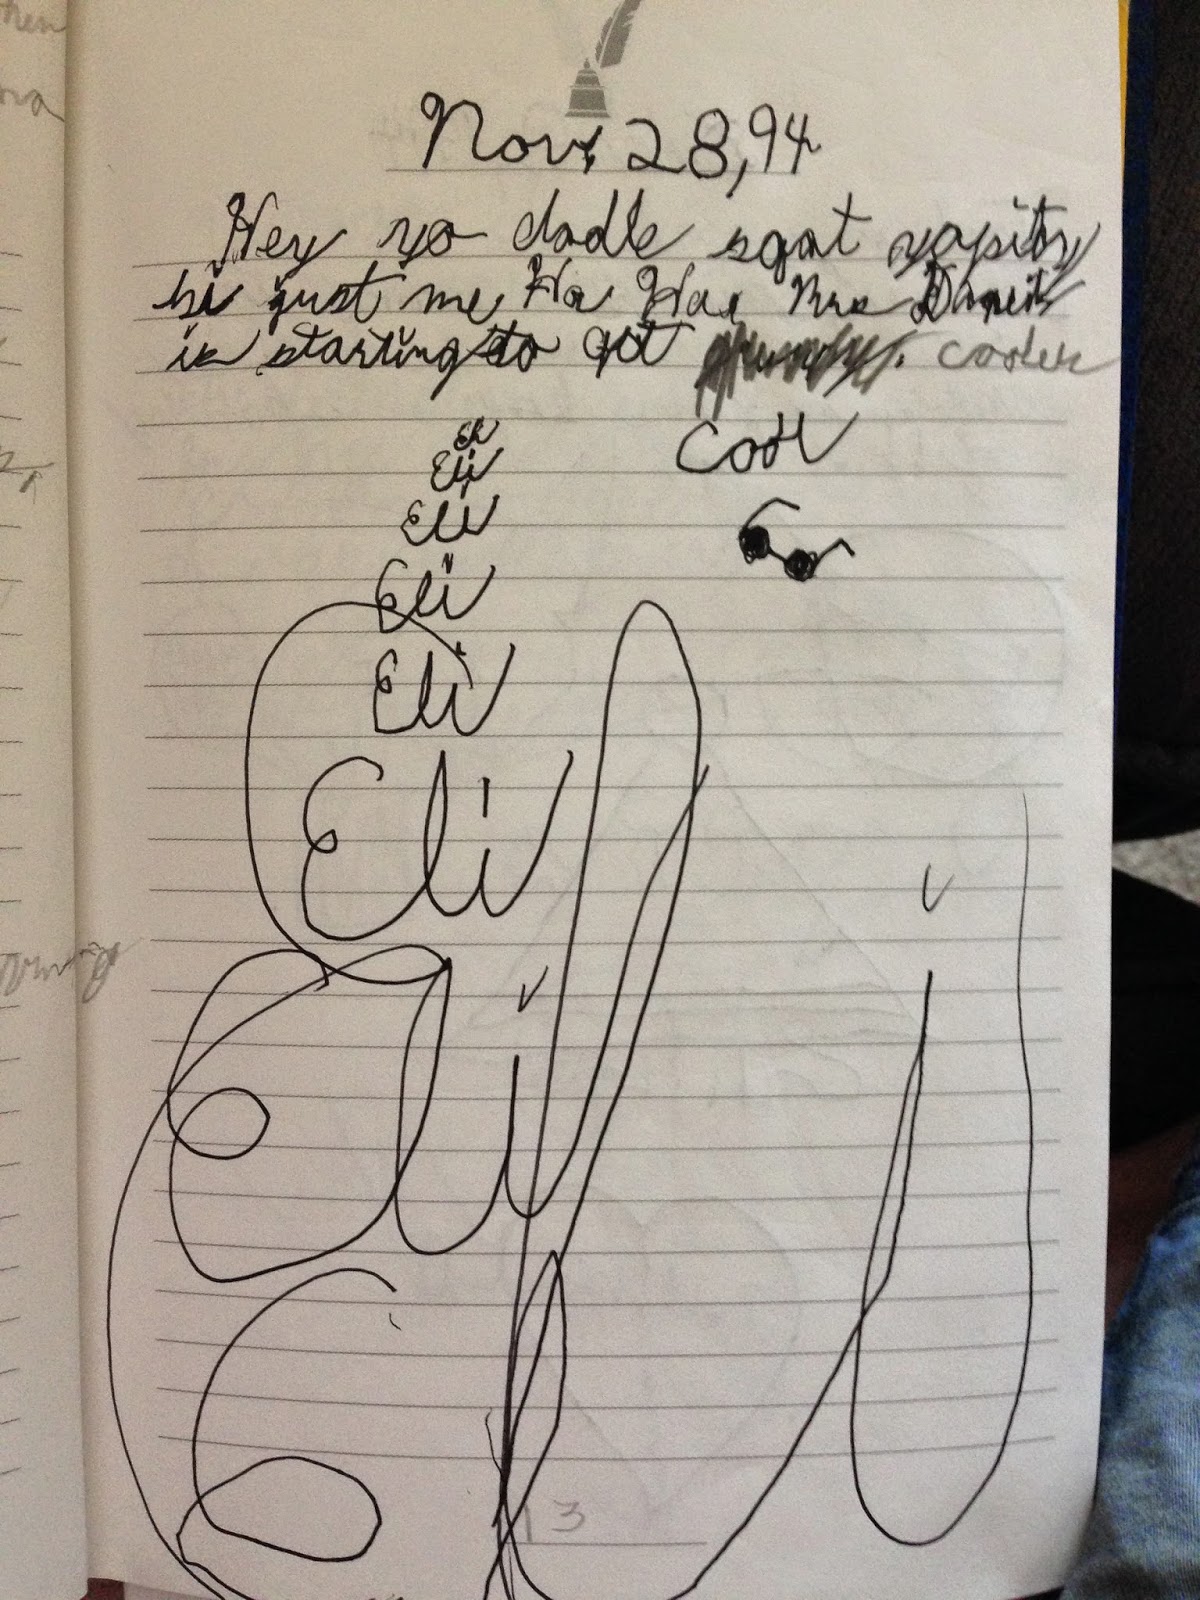 Nov. 28, 94
Hey yo dodle sgot yapity
hi just me Ha Ha, Mrs
is starting to get cooler
Cool
Eli
Eli
Eli
Eli
Eli
Eli
Eli
Eli
13